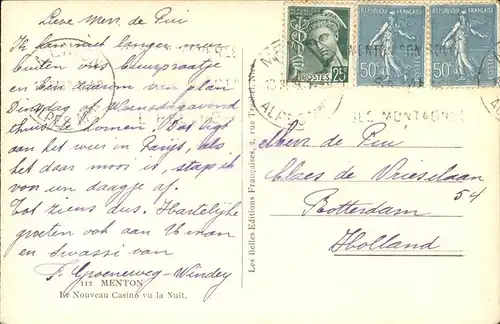 Lieve Mevr. de Prie
Ik kan niet langer mijn
buiten vis buurpraatje
en ben daarom van plan
Dinsdag of Woensdagavond
thuis te komen. Dat ligt
aan het weer in Parijs, als
het daar mooi is, stap ik
een daagje af.
Tot ziens dus. Hartelijke
groeten ook aan Uw man
en
F. Groeneweg-Windey
112 MENTON
Le Nouveau Casino vu la Nuit.
Les Belles Editions Françaises, 2, rue
POSTES 25
REPUBLIQUE FRANÇAISE
50c POSTES
REPUBLIQUE FRANÇAISE
50c POSTES
MENTON SON SOLEIL
SES MONTAGNES
ALPES
de Prie
Claes de Vrieselaan
54
Rotterdam
Holland